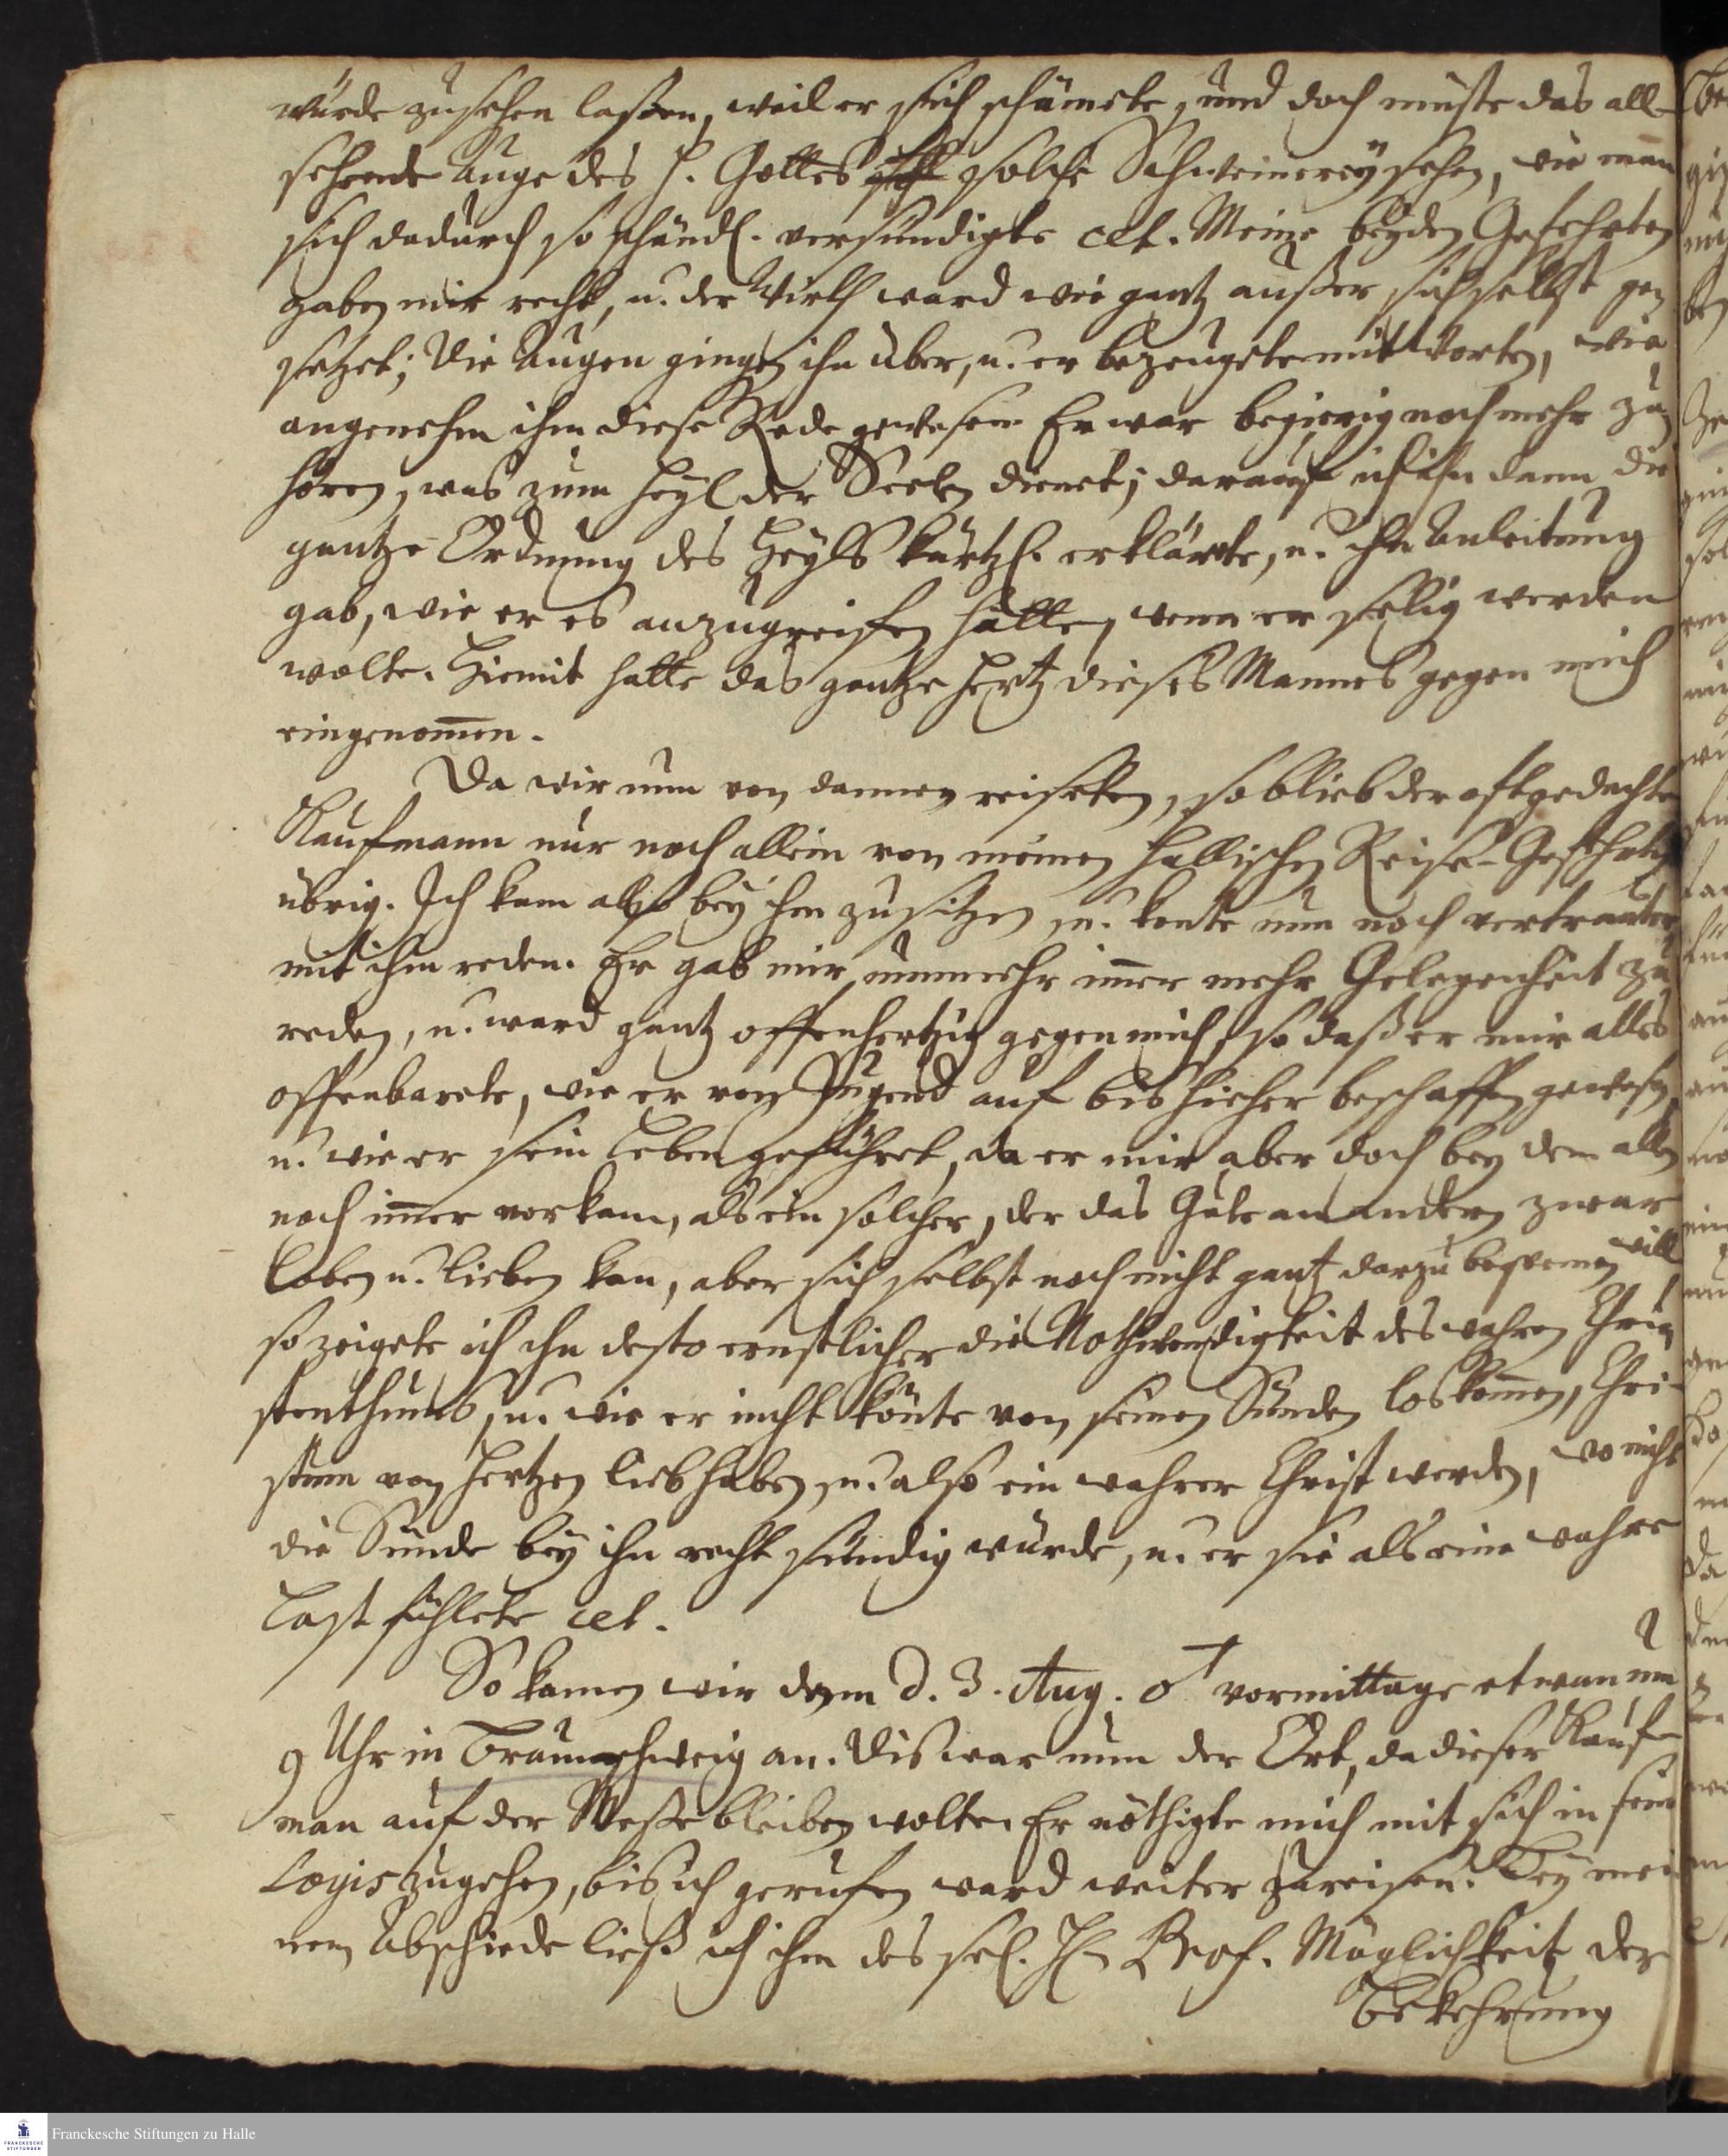 würde zusehen laßen, weil er sich schämete, und doch müste das all-
sehende Auge des H. Gottes solche Schweinerey sehen, wie man
sich dadurch so schändl. versündigte cet. Meine beyden Gefehrten
gaben mir recht, u. der Wirth ward wie gantz außer sich selbst ge-
setzet; Die Augen gingen ihn über, u. er bezeugete mit Worten, wie
angenehm ihm diese Rede gewesen. Er war begierig noch mehr zu
hören, was zum Heyl der Seelen dienet; darauf ich ihn dann die
gantze Ordnung des Heyls kürtzl. erklärete, u. ihn Anleitung
gab, wie er es anzugreifen hätte, wenn er selig werden
wolte. Hiemit hatte das gantze Hertz dieses Mannes gegen mich
eingenom̅en.
Da wir nun von dannen reiseten, so blieb der oftgedachte
Kaufmann nur noch allein von meinen Hallischen Reise-Gefehrten
übrig. Ich kam also bey ihm zu sitzen, u. konte nun noch vertrauter
mit ihm reden. Er gab mir nunmehr im̅er mehr Gelegenheit zu
reden, u. ward gantz offenhertzig gegen mich, so daß er mir alles
offenbarete, wie er von Jugend auf bis hieher beschaffen gewesen,
u. wie er sein Leben geführet, da er mir aber doch bey dem allen
noch im̅er vorkam, als ein solcher, der das Gute an andern zwar
loben u. lieben kan, aber sich selbst noch nicht gantz darzu beqvemen will
so zeigete ich ihn desto ernstlicher die Nothwendigkeit des wahren Chri-
stenthums, u. wie er nicht könte von seinen Sünden loskom̅en, Chri-
stum von Hertzen lieb haben, u. also ein wahrer Christ werden, wo nicht
die Sünde bey ihn recht sündig würde, u. er sie als eine wahre
Last fühlete cet.
So kamen wir denn d. 3. Aug. ♂ vormittage etwan um
9 Uhr in Braunschweig an. Dis war nun der Ort, da dieser Kauf-
man auf der Messe bleiben wolte. Er nöthigte mich mit sich in sein
Logis zugehen, bis ich gerufen ward weiter zureisen. Bey mei-
nem Abschiede ließ ich ihm des sel. H. Prof. Möglichkeit der
Bekehrung
Franckesche Stiftungen zu Halle